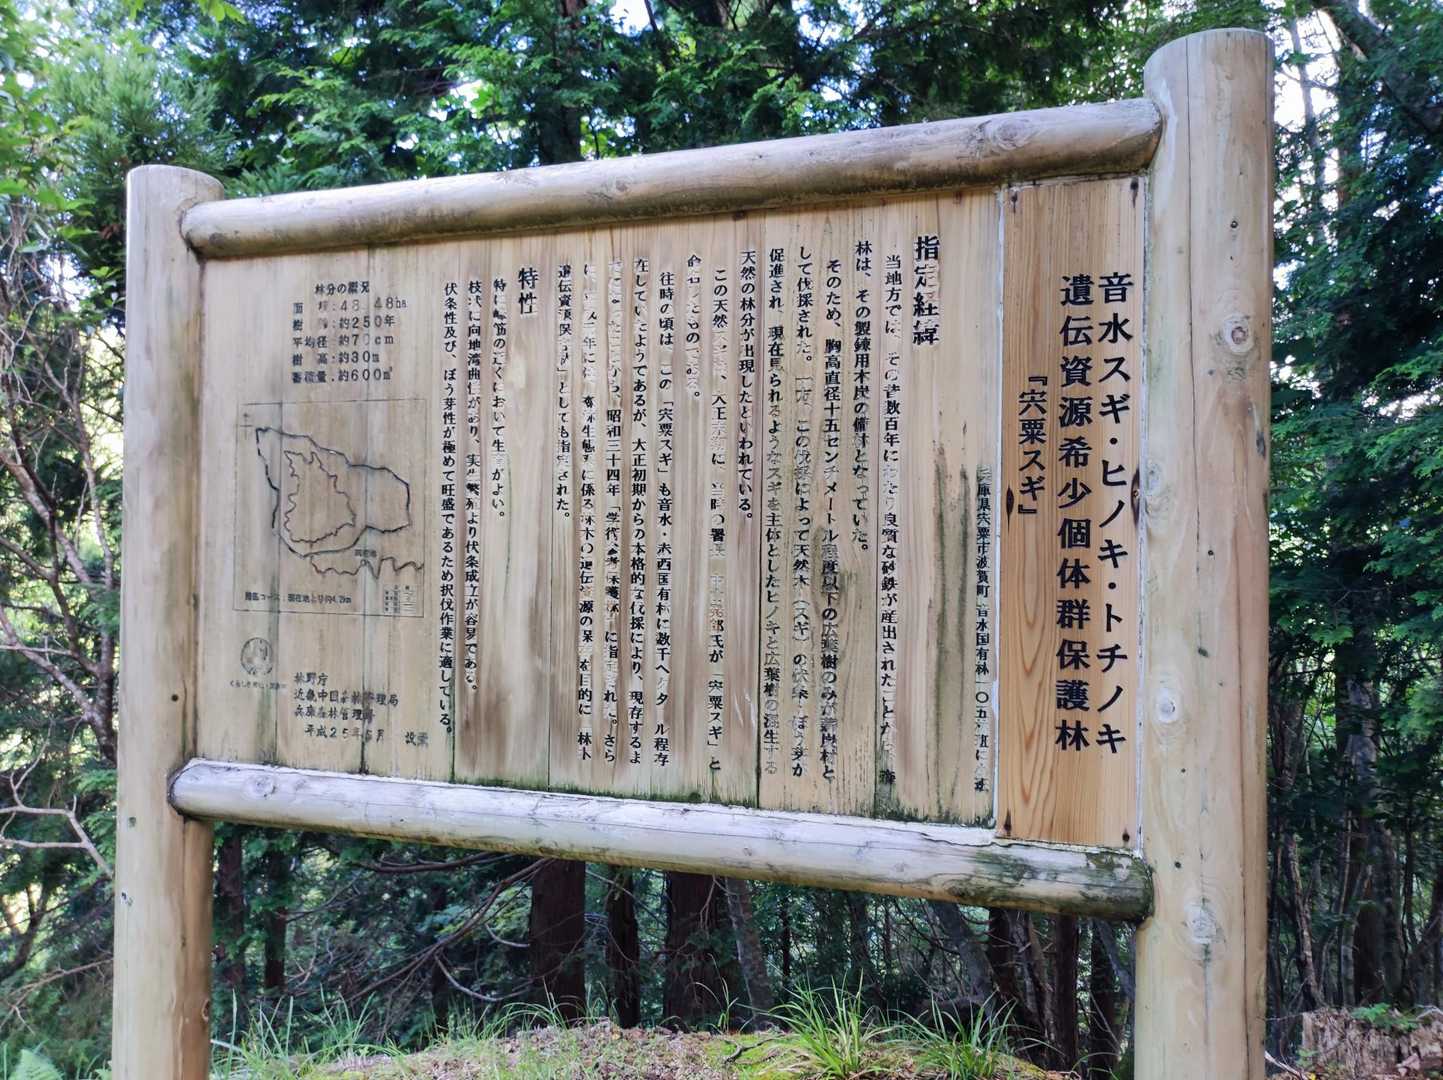 音水スギ・ヒノキ・トチノキ
遺伝資源希少個体群保護林
『宍粟スギ』
兵庫県宍粟市波賀町 音水国有林一〇五
指定経緯
当地方では、その昔数百年にわたり良質な砂鉄が産出されたことから、
林は、その製錬用木炭の備林となっていた。
そのため、胸高直径十五センチメートル程度以下の広葉樹のみが薪炭材と
して伐採された。一方、この伐採によって天然木(スギ)の伏条・ぼう芽が
促進され、現在見られるようなスギを主体としたヒノキと広葉樹の混生する
天然の林分が出現したといわれている。
この天然 に、当時の署長 氏が「宍粟スギ」と
命名したものである。
往時の頃は、この「宍粟スギ」も音水・赤西国有林に数千ヘクタール程存
在していたようであるが、大正初期からの本格的な伐採により、現存するよ
うになったことから、昭和三十四年「学術参考保護林」に指定された。さら
に、 年には、森林生態系に係る林木の遺伝資源の保存を目的に「林木
遺伝資源保存林」としても指定された。
特性
特に峰筋の近くにおいて生育がよい。
枝状に向地湾曲性があり、実生繁殖より伏条成立が容易である。
伏条性及び、ぼう芽性が極めて旺盛であるため択伐作業に適している。
林分の概況
面 積:48.48ha
樹 齢:約250年
平均径:約70cm
樹 高:約30m
蓄積量:約600㎥
現在地
現在地より約4.2km
林野庁
近畿中国森林管理局
兵庫森林管理署
平成25年5月 設置